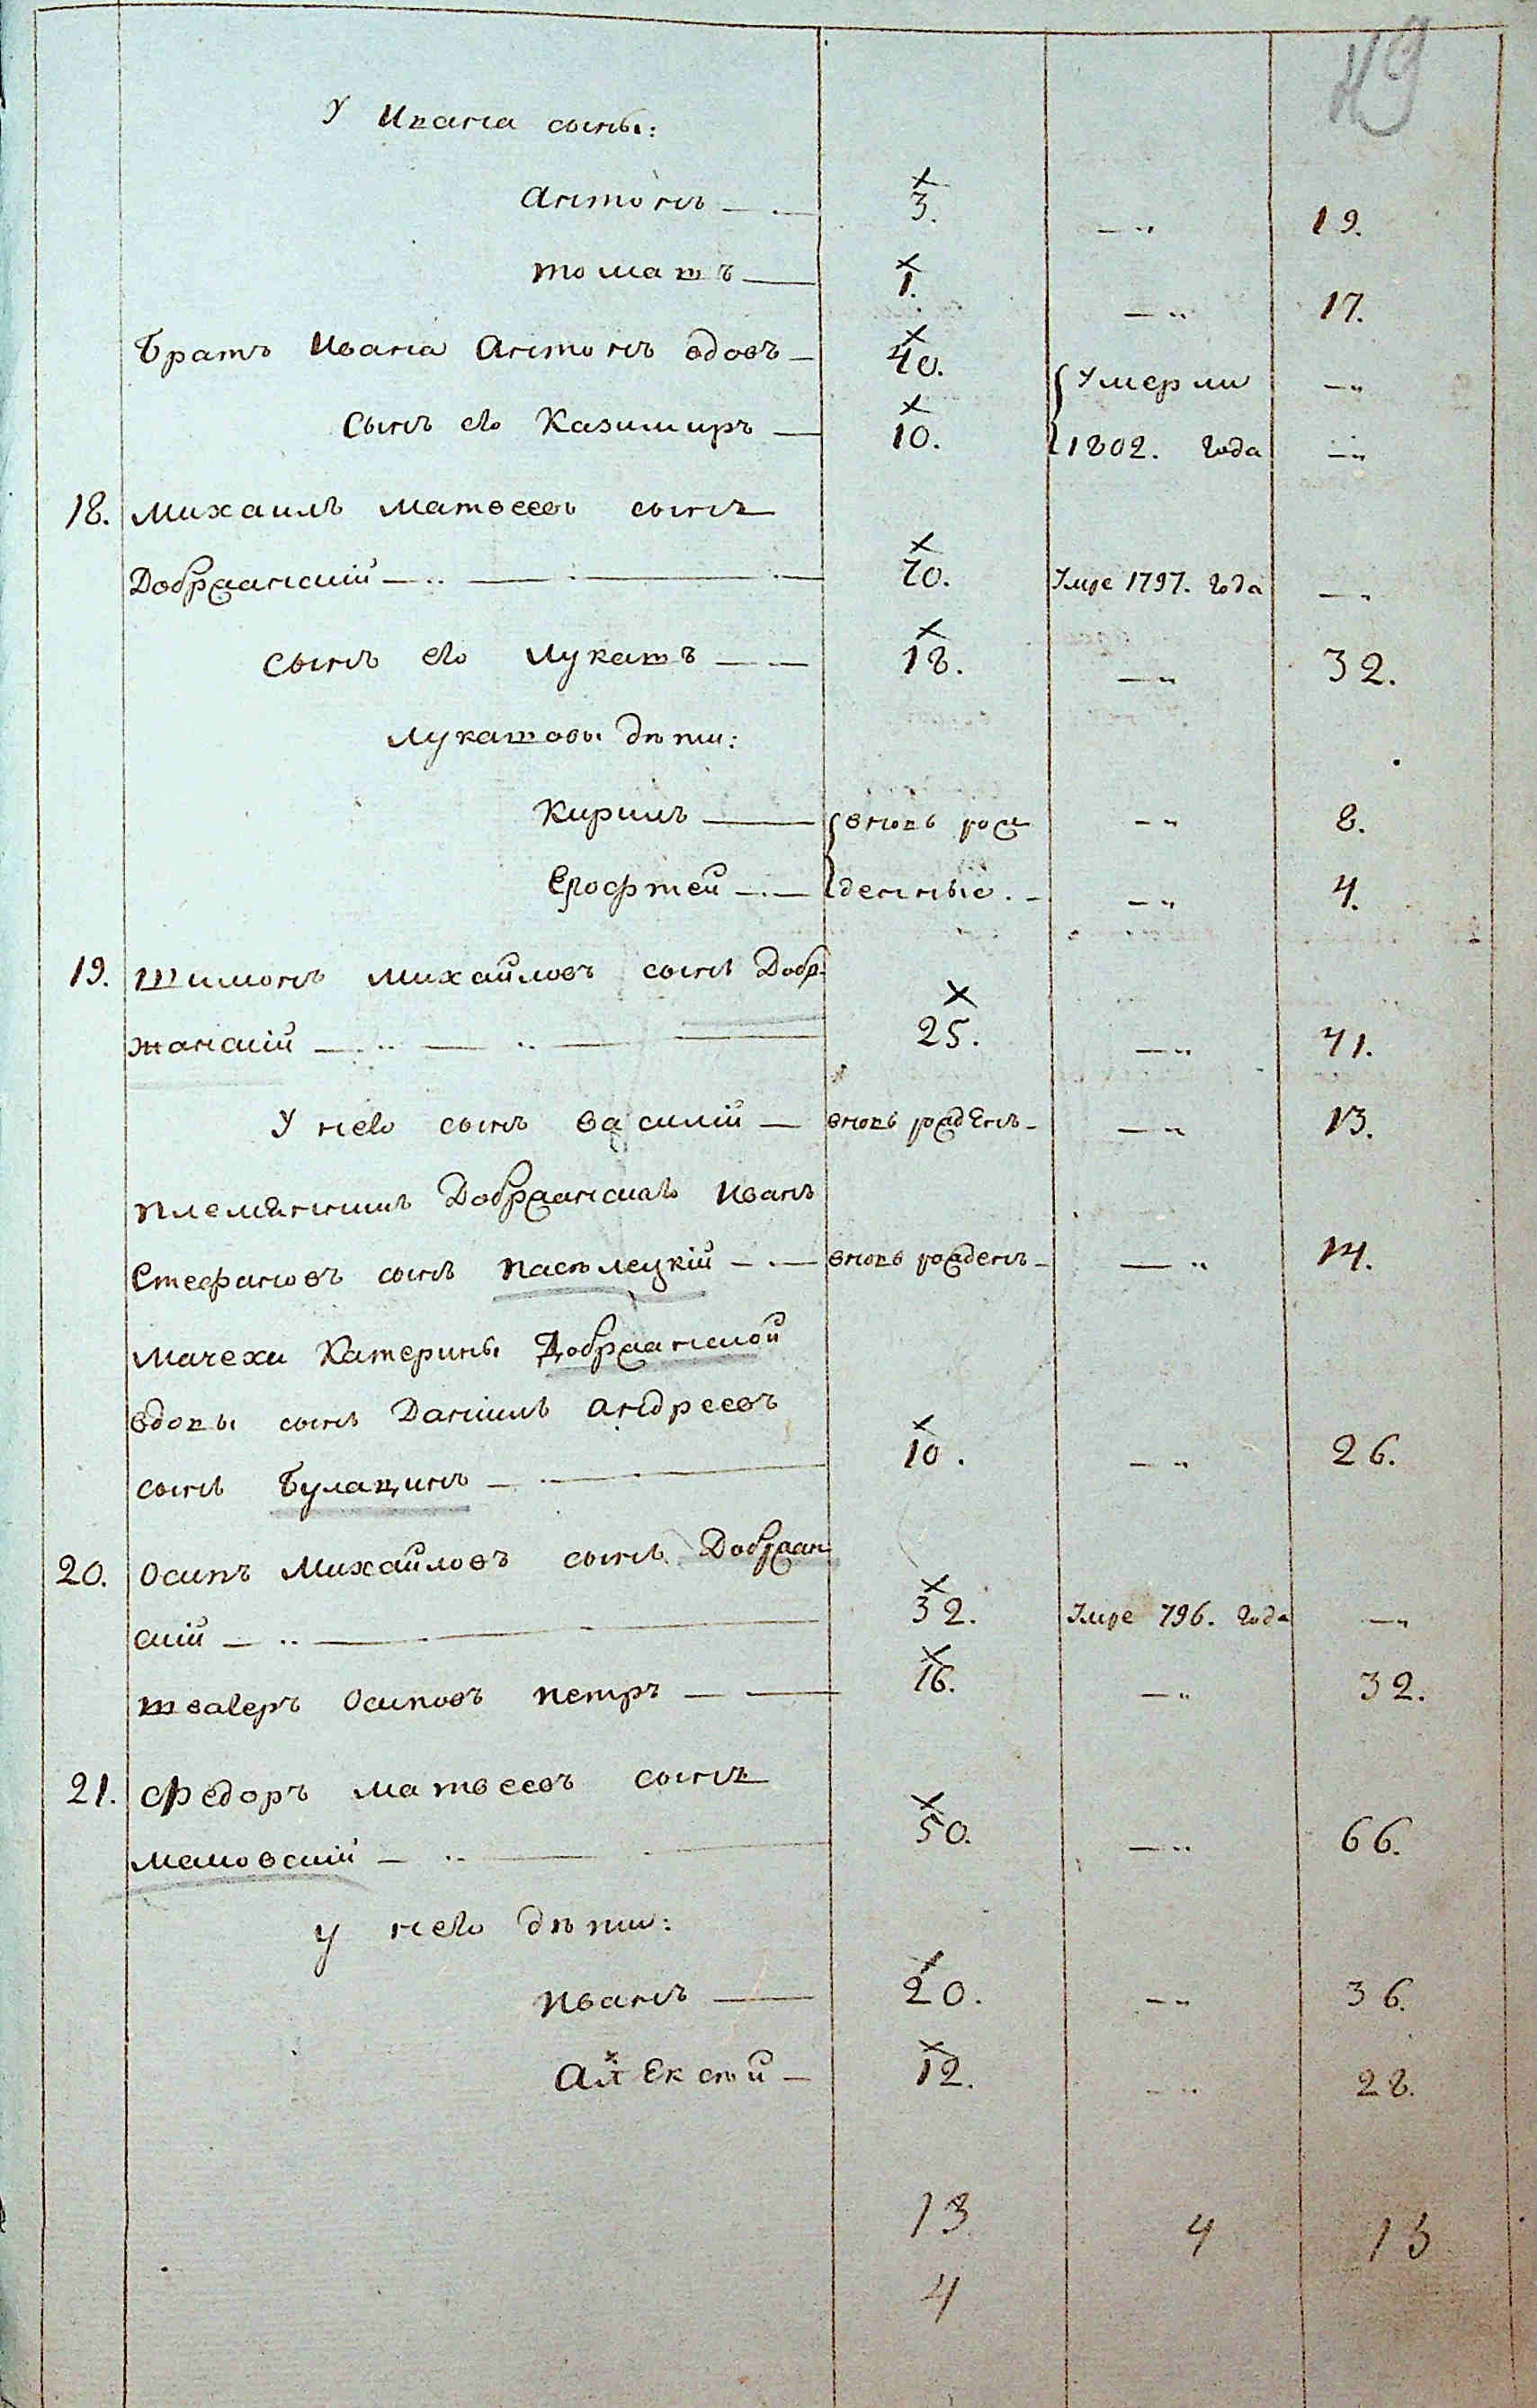 49
У Ивана сыны:
Антонъ — 3. —„ 19.
томашъ — 1. —„ 17.
братъ Ивана Антонъ вдовъ — 40. Умерли —„
сынъ его Казимиръ — 10. 1802. года —„
18. Михаилъ Матвеевъ сынъ
Добржанский — 70. Умре 1797. года —„
сынъ его Лукашъ — 18. —„ 32.
Лукашовы дѣти:
Кирилъ — вновь рож —„ 8.
Ерофтей — денные. —„ 4.
19. Шимонъ Михайловъ сынъ Добр-
жанский — 25. —„ 41.
У него сынъ Василий — вновь рожденъ — —„ 13.
племянникъ Добржанскаго Иванъ
Стефановъ сынъ Пасѣлецкій — вновь рожденъ — —„ 14.
мачехи Катерины Добржанской
вдовы сынъ Даниилъ Андреевъ
сынъ Булацинъ — 10. —„ 26.
20. Осипъ Михайловъ сынъ Добржан
ский — 32. Умре 796. года —„
швагеръ Осиповъ Петръ — 16. —„ 32.
21. Федоръ Матвеевъ сынъ
Маковский — 50. —„ 66.
у него дѣти:
Иванъ — 20. —„ 36.
Алексѣй — 12. —„ 28.
13 4 13
4